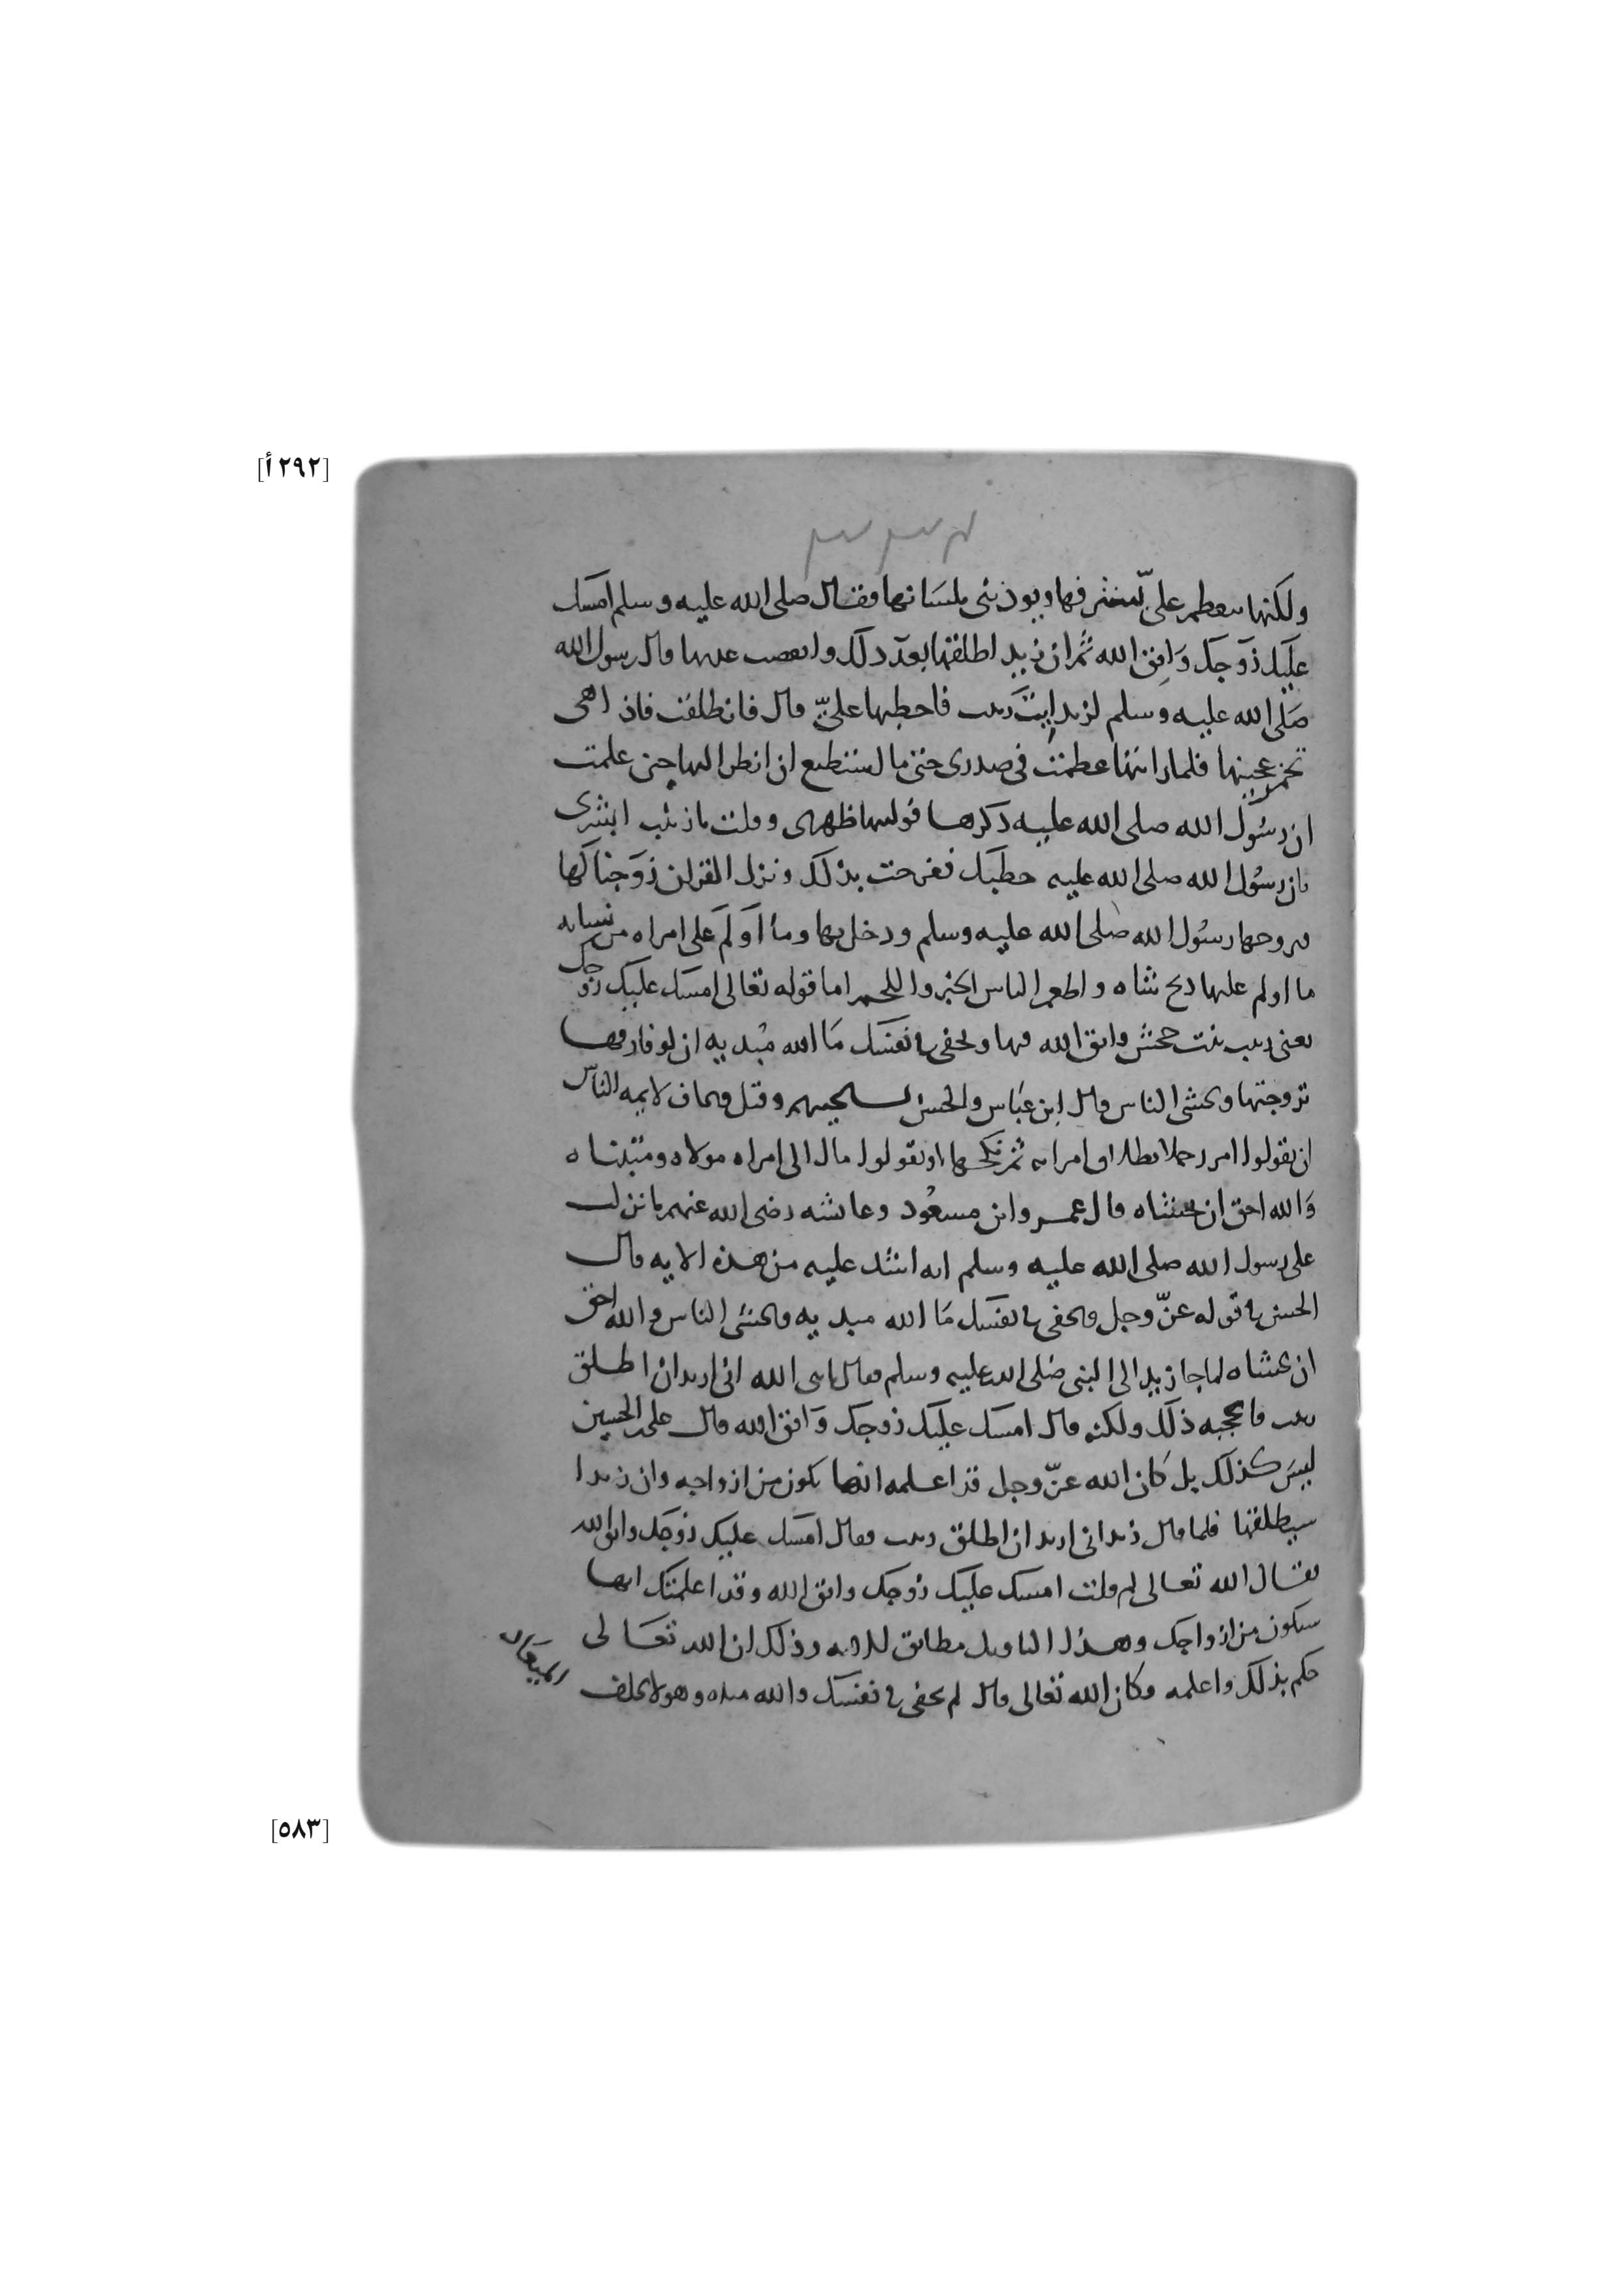 [٢٩٢ أ]
ولكنها تتعظم علي لشرفها وتوذيني بلسانها فقال صلى الله عليه وسلم امسك
عليك زوجك واتق الله ثم ان زيد اطلقها بعد ذلك وانقضت عدتها قال رسول الله
صلى الله عليه وسلم لزيد ايت زينب فاخطبها علي قال فانطلقت فاذا هي
تخمر عجينها فلما رايتها عظمت في صدري حتى ما استطيع ان انظر اليها حين علمت
ان رسول الله صلى الله عليه ذكرها فوليتها ظهري وقلت يا زينب ابشري
فان رسول الله صلى الله عليه خطبك ففرحت بذلك ونزل القران زوجناكها
فتزوجها رسول الله صلى الله عليه وسلم ودخل بها وما اولم على امراه من نسايه
ما اولم عليها ذبح شاه واطعم الناس الخبز واللحم اما قوله تعالى امسك عليك زوجك
يعني زينب بنت جحش واتق الله فيها وتخفي في نفسك ما الله مبديه ان لو فارقها
تزوجتها وتخشى الناس قال ابن عباس والحسن تستحييهم وقيل وتخاف لايمه الناس
ان يقولوا امر رجلا بطلاق امراته ثم نكحها او يقولوا مال الى امراه مولاه ومتبناه
والله احق ان تخشاه قال عمر وابن مسعود وعايشه رضي الله عنهم ما نزلت
على رسول الله صلى الله عليه وسلم ايه اشد عليه من هذه الايه قال
الحسن في قوله عز وجل وتخفي في نفسك ما الله مبديه وتخشى الناس والله احق
ان تخشاه لما جا زيد الى النبي صلى الله عليه وسلم فقال يا نبي الله اني اريد ان اطلق
زينب فاعجبه ذلك ولكنه قال امسك عليك زوجك واتق الله قال علي بن الحسين
ليس كذلك بل كان الله عز وجل قد اعلمه انها تكون من ازواجه وان زيدا
سيطلقها فلما قال زيد اني اريد ان اطلق زينب فقال امسك عليك زوجك واتق الله
فقال الله تعالى لم قلت امسك عليك زوجك واتق الله وقد اعلمتك انها
ستكون من ازواجك وهذا التاويل مطابق للايه وذلك ان الله تعالى
حكم بذلك واعلمه وكان الله تعالى قال لم تخفي في نفسك والله مبديه وهو لا يخلف
الميعاد
[٥٨٣]